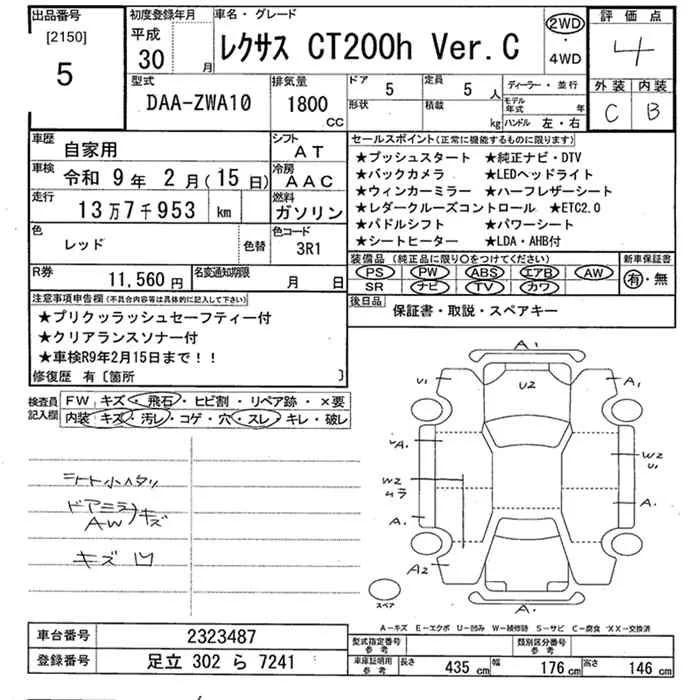 出品番号 初度登録年月 車名・グレード 評価点
[2150] 5 平成 30 月 レクサス CT200h Ver.C 2WD・4WD 4
型式 排気量 ドア 5 定員 5 人 ディーラー・並行 外装 内装
DAA-ZWA10 1800 CC 形状 積載 kg モデル年式 年 C B
ハンドル 左・右
車歴 自家用 シフト AT セールスポイント(正常に機能するものに限ります)
車検 令和 9年 2月(15日) 冷房 AAC
★プッシュスタート ★純正ナビ・DTV
★バックカメラ ★LEDヘッドライト
走行 13万7千953 km 燃料 ガソリン
★ウィンカーミラー ★ハーフレザーシート
★レダークルーズコントロール ★ETC2.0
色 レッド 色替 色コード 3R1
★パドルシフト ★パワーシート
★シートヒーター ★LDA・AHB付
R券 11,560円 名変通知期限 月 日
装備品(純正品に限り○をつけてください) 新車保証書
PS PW ABS エアB AW 有・無
SR ナビ TV カワ
注意事項申告欄(不具合内容等は具体的に記入して下さい)
後日品 保証書・取説・スペアキー
★プリクッラッシュセーフティー付
★クリアランスソナー付
★車検R9年2月15日まで!!
修復歴 有〔箇所 〕
検査員記入欄 FW キズ・飛石・ヒビ割・リペア跡・×要
内装 キズ・汚レ・コゲ・穴・スレ・キレ・破レ
シート小ヘタリ
ドアミラ
AW キズ
キズ 凹
A1
U1 U2 A1
A1 W2 U1
W2 ムラ
A1 A1
A2
スペア A1
A-キズ E-エクボ U-凹み W-補修跡 S-サビ C-腐食 XX-交換済
車台番号 2323487 型式指定番号 参考 類別区分番号 参考
登録番号 足立 302 ら 7241 車庫証明用 参考 長さ 435 cm 幅 176 cm 高さ 146 cm